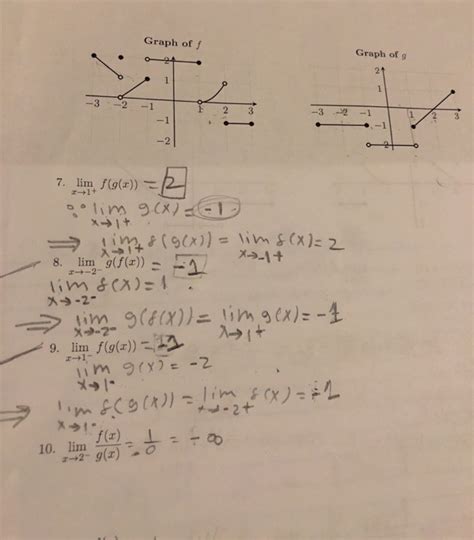 Graph of f
2
1
-3 -2 -1 1 2 3
-1
-2
Graph of g
2
1
-3 -2 -1 1 2 3
-1
-2
7. lim x→1+ f(g(x)) = 2
∵ lim x→1+ g(x) = -1
⟹ lim x→1+ f(g(x)) = lim x→-1+ f(x) = 2
8. lim x→-2- g(f(x)) = -1
lim x→-2- f(x) = 1
⟹ lim x→-2- g(f(x)) = lim x→1+ g(x) = -1
9. lim x→1- f(g(x)) =
lim x→1- g(x) = -2
⟹ lim x→1- f(g(x)) = lim x→-2+ f(x) = -1
10. lim x→2- f(x)/g(x) = 1/0 = -∞